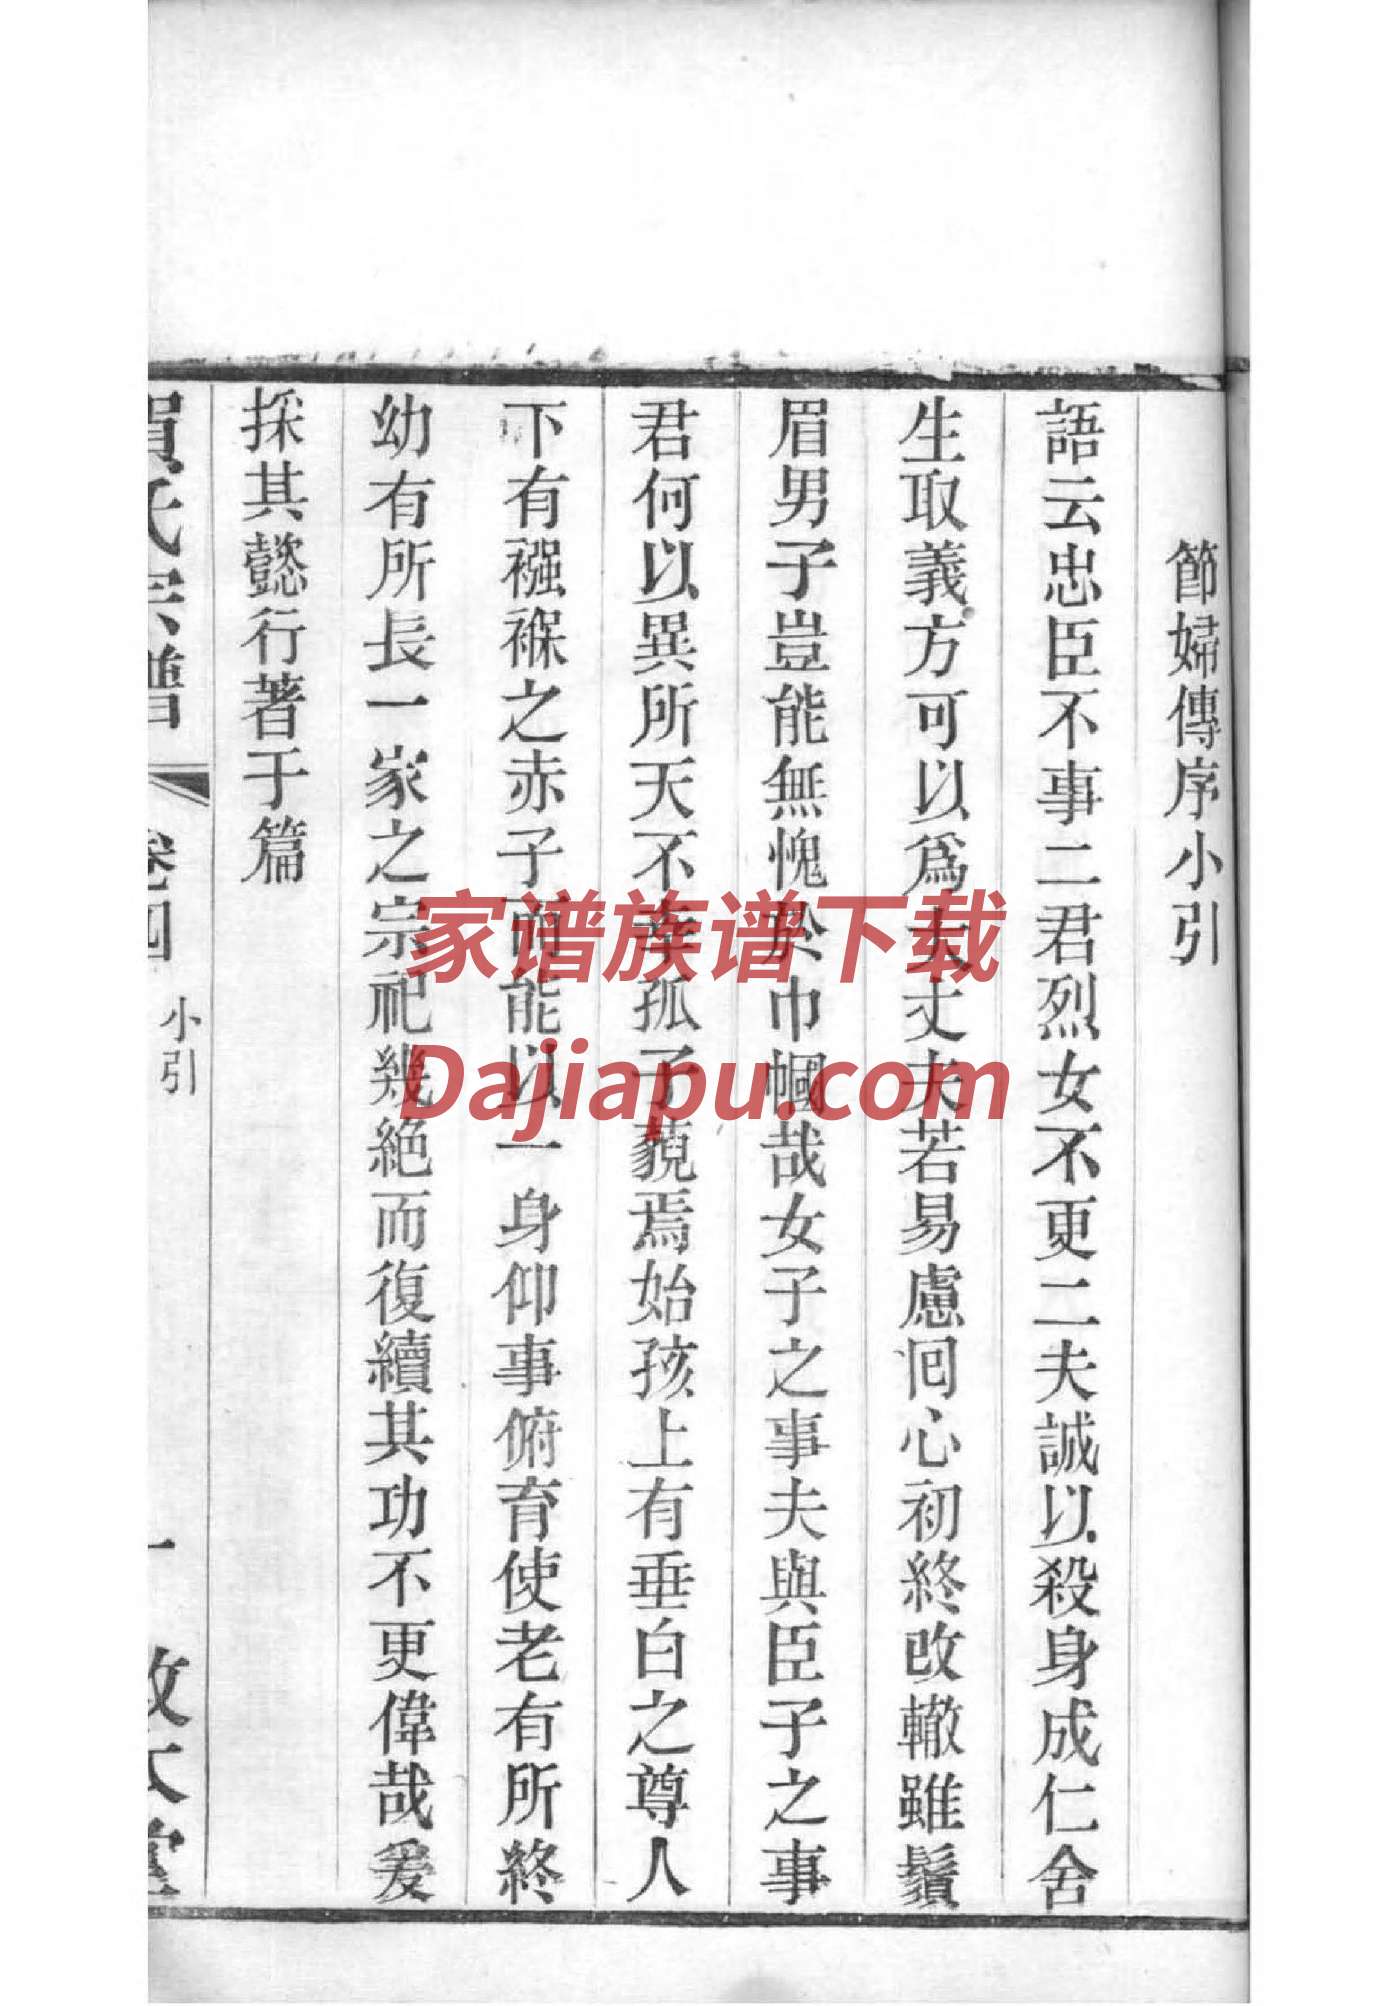 節婦傳序小引
語云忠臣不事二君烈女不更二夫誠以殺身成仁舍
生取義方可以爲大丈夫若易慮囘心初終改轍雖鬚
眉男子豈能無愧於巾幗哉女子之事夫與臣子之事
君何以異所天不幸孤子藐焉始孩上有垂白之尊人
下有襁褓之赤子而能以一身仰事俯育使老有所終
幼有所長一家之宗祀幾絶而復續其功不更偉哉爰
採其懿行著于篇
氏宗譜
卷四
小引
一
堂
家谱族谱下载
Dajiapu.com